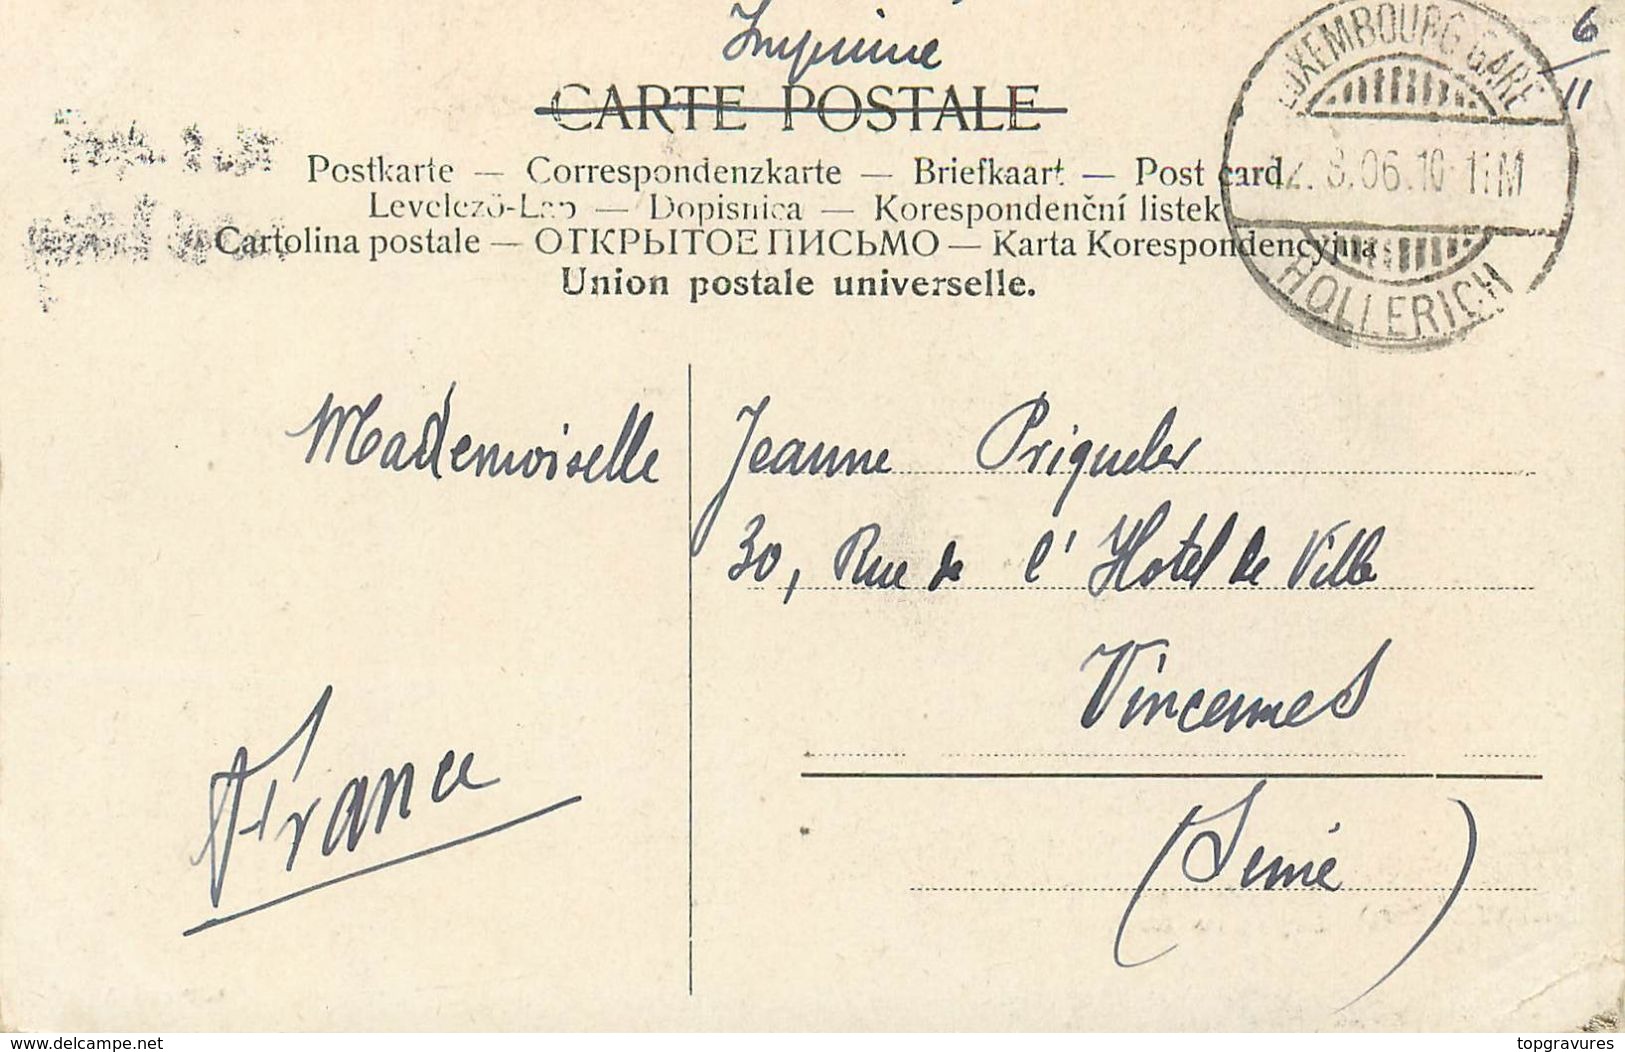 Imprimé
6
11
CARTE POSTALE
Postkarte — Correspondenzkarte — Briefkaart — Post card
Levelező-Lap — Dopisnica — Korespondenční listek
Cartolina postale — ОТКРЫТОЕ ПИСЬМО — Karta Korespondencyjna
Union postale universelle.
LUXEMBOURG GARE
12.8.06.10-11M
HOLLERICH
Mademoiselle Jeanne Prigueler
30, Rue de l'Hotel de Ville
Vincennes
France
(Seine)
delcampe.net
topgravures